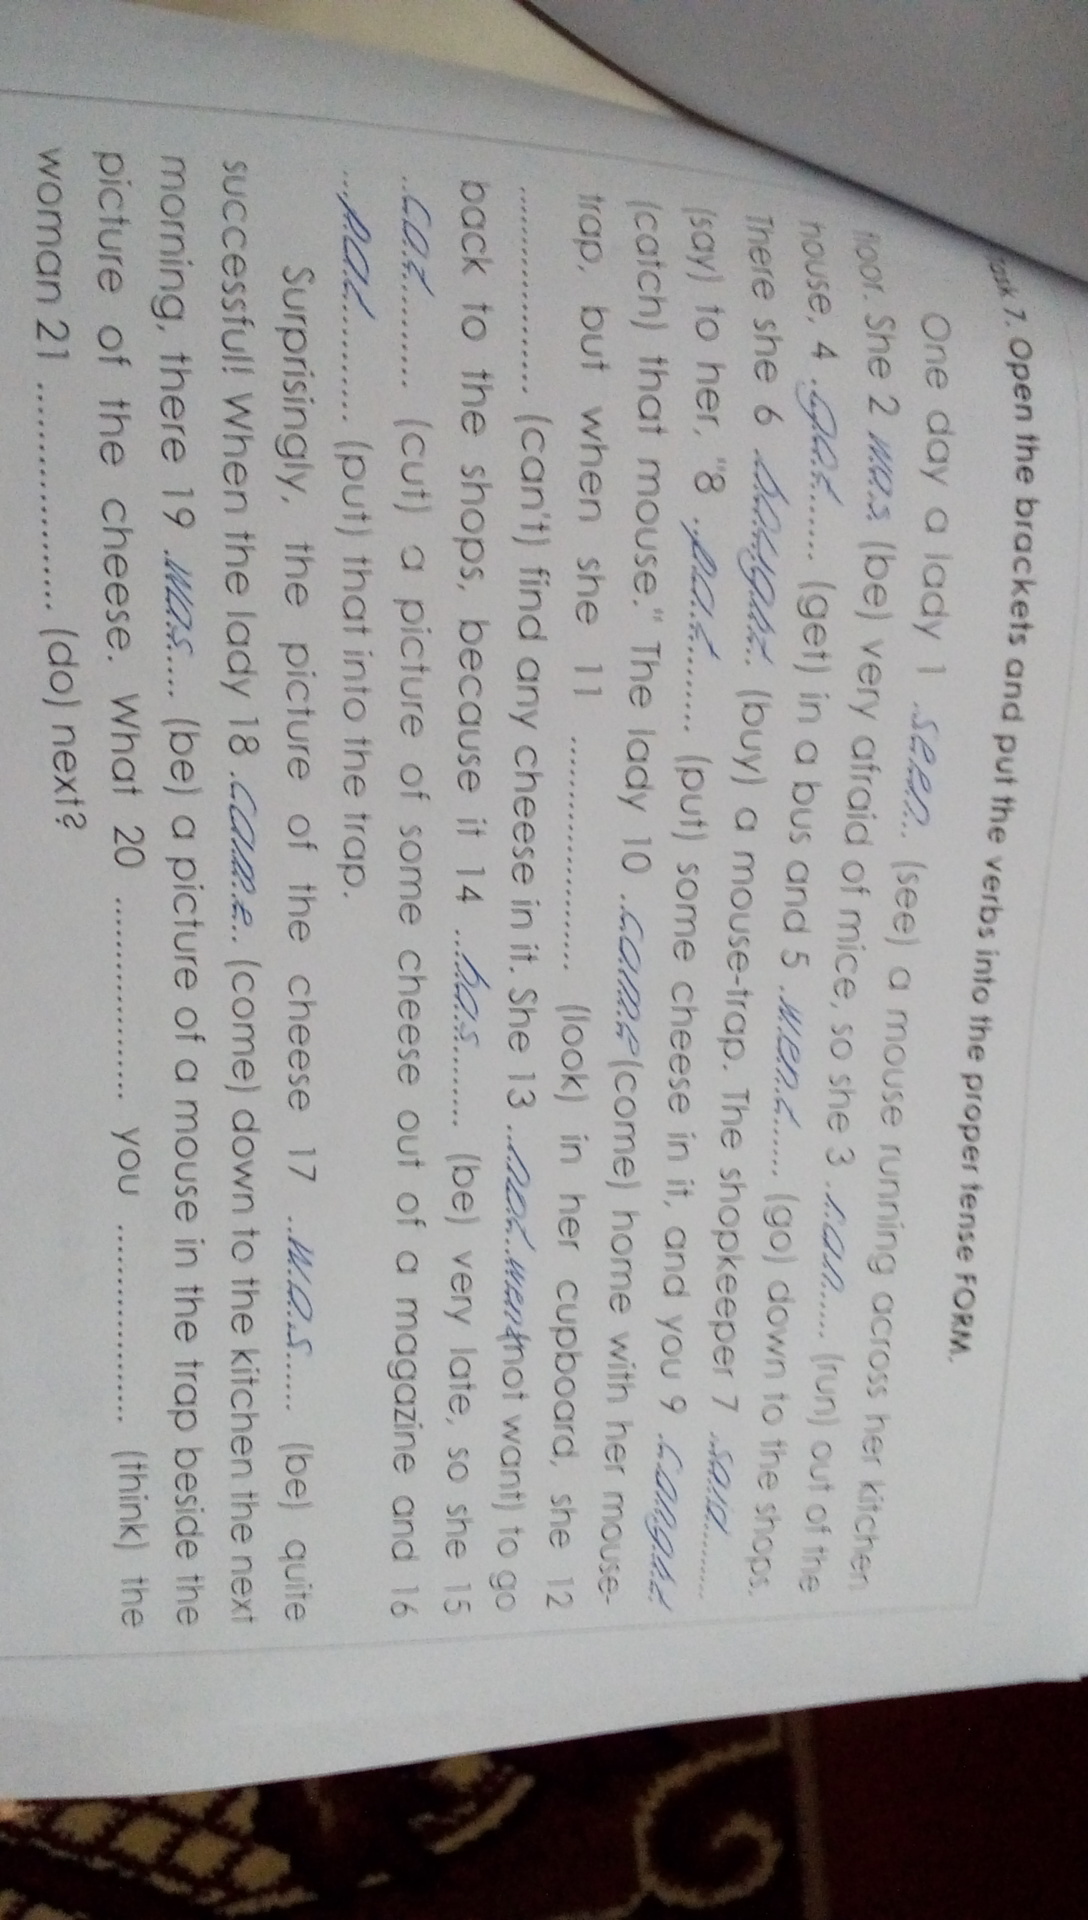 ask 7. Open the brackets and put the verbs into the proper tense FORM.
One day a lady 1 ..seen.. (see) a mouse running across her kitchen
floor. She 2 was (be) very afraid of mice, so she 3 .ran...... (run) out of the
house, 4 ..got....... (get) in a bus and 5 .went...... (go) down to the shops.
There she 6 .bought.. (buy) a mouse-trap. The shopkeeper 7 ..said...........
(say) to her, "8 ..put.......... (put) some cheese in it, and you 9 .caught
(catch) that mouse." The lady 10 ..came (come) home with her mouse-
trap, but when she 11 ........................ (look) in her cupboard, she 12
................... (can't) find any cheese in it. She 13 ..not went (not want) to go
back to the shops, because it 14 ...has.......... (be) very late, so she 15
..cut........... (cut) a picture of some cheese out of a magazine and 16
...put............. (put) that into the trap.
Surprisingly, the picture of the cheese 17 ..was....... (be) quite
successful! When the lady 18 .came.. (come) down to the kitchen the next
morning, there 19 .was..... (be) a picture of a mouse in the trap beside the
picture of the cheese. What 20 ..................... you ..................... (think) the
woman 21 ........................ (do) next?